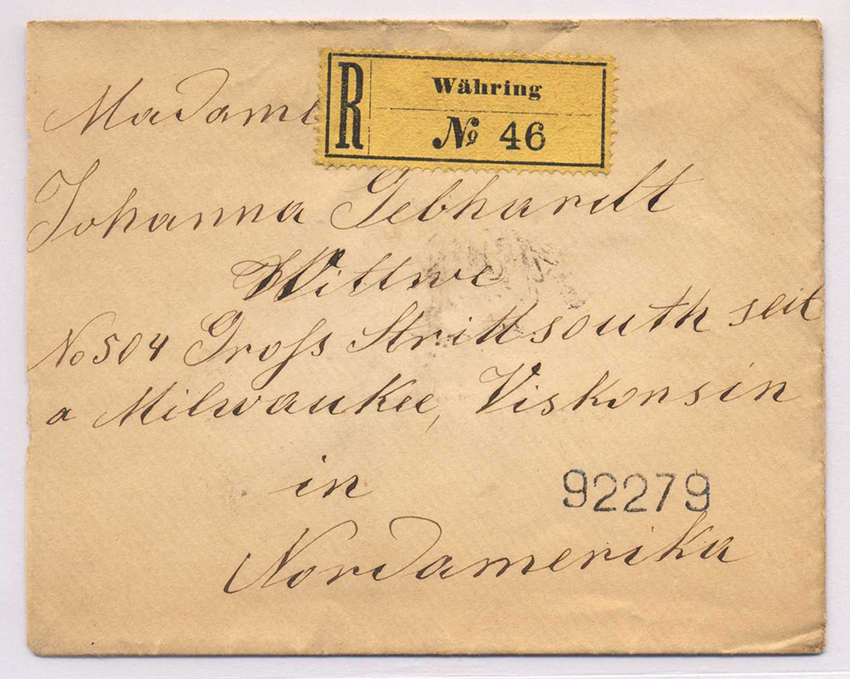 R
Währing
№ 46
Madame
Johanna Gebhardt
Wittwe
No 504 Groſs Strittsouth seit
a Milwaukee, Viskonsin
in
92279
Nordamerika